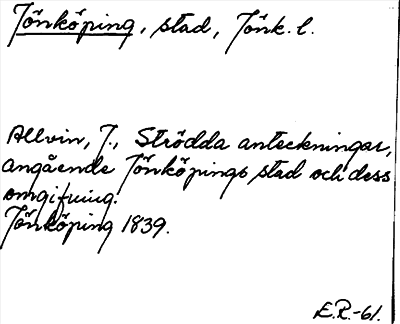 Jönköping, stad, Jönk. l.
Allvin, J., Strödda anteckningar,
angående Jönköpings stad och dess
omgifning.
Jönköping 1839.
E.R.-61.